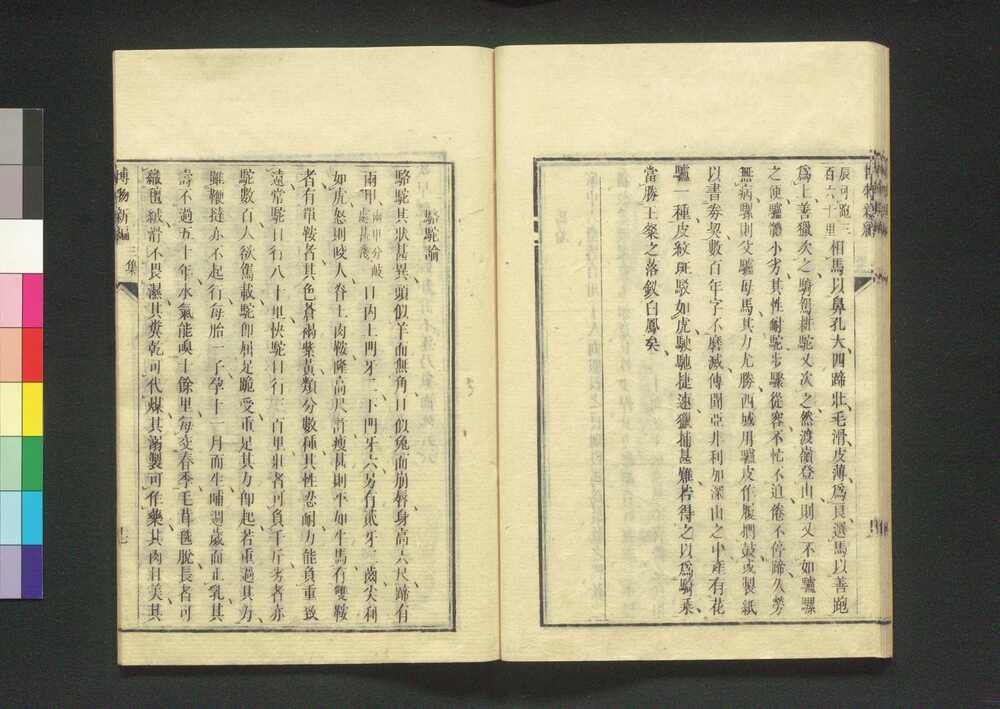 辰可跑三百六十里相馬以鼻孔大四蹄壯毛滑皮薄爲良選馬以善跑
爲上善獵次之騎駕耕駝又次之然渡嶺登山則又不如驢騾
之便驢體小劣其性耐駝步驟從容不忙不迫倦不停蹄久勞
無病騾則父驢母馬其力尤勝西域用驢皮作履擠鼓或製紙
以書劵契數百年字不磨滅傳聞亞非利加深山之中產有花
驢一種皮紋斑駁如虎駛馳捷速獵捕甚難若得之以爲騎乘
當勝王粲之落釵白鳳矣
駱駝論
駱駝其狀甚異頭似羊而無角目似兔而崩唇身高六尺蹄有
兩甲兩甲分岐口內上門牙二下門牙六另有貳牙一齒尖利
如虎怒則咬人脊上肉鞍隆高尺許瘦甚則平如牛馬有雙鞍
者有單鞍者其色蒼褐紫黃類分數種其性忍耐力能負重致
遠常駝日行八十里快駝日行三百里壯者可負千斤劣者亦
駝數百人欲駕載駝卽屈足跪受重足其力卽起若重過其力
雖鞭撻亦不起行每胎一子孕十一月而生哺週歲而止乳其
壽不過五十年水氣能嗅十餘里每交春季毛茸氊脫長者可
織氊毧滑不畏濕其糞乾可代煤其溺製可作藥其肉甘美其
博物新編 三集 十七